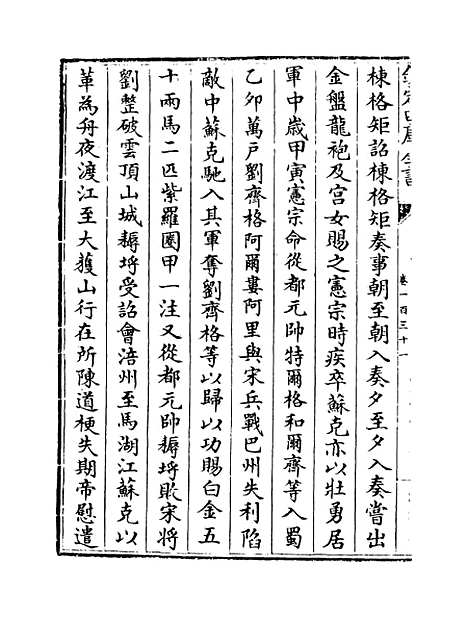 欽定四庫全書
卷一百三十一
棟格矩詔棟格矩奏事朝至朝入奏夕至夕入奏嘗出
金盤龍袍及宫女賜之憲宗時疾卒蘇克亦以壯勇居
軍中歳甲寅憲宗命從都元帥特爾格和爾齊等入蜀
乙卯萬戶劉齊格阿爾婁阿里與宋兵戰巴州失利陷
敵中蘇克馳入其軍奪劉齊格等以歸以功賜白金五
十兩馬二匹紫羅圏甲一注又從都元帥耨埒敗宋將
劉整破雲頂山城耨埒受詔會涪州至馬湖江蘇克以
革為舟夜渡江至大獲山行在所陳道梗失期帝慰遣